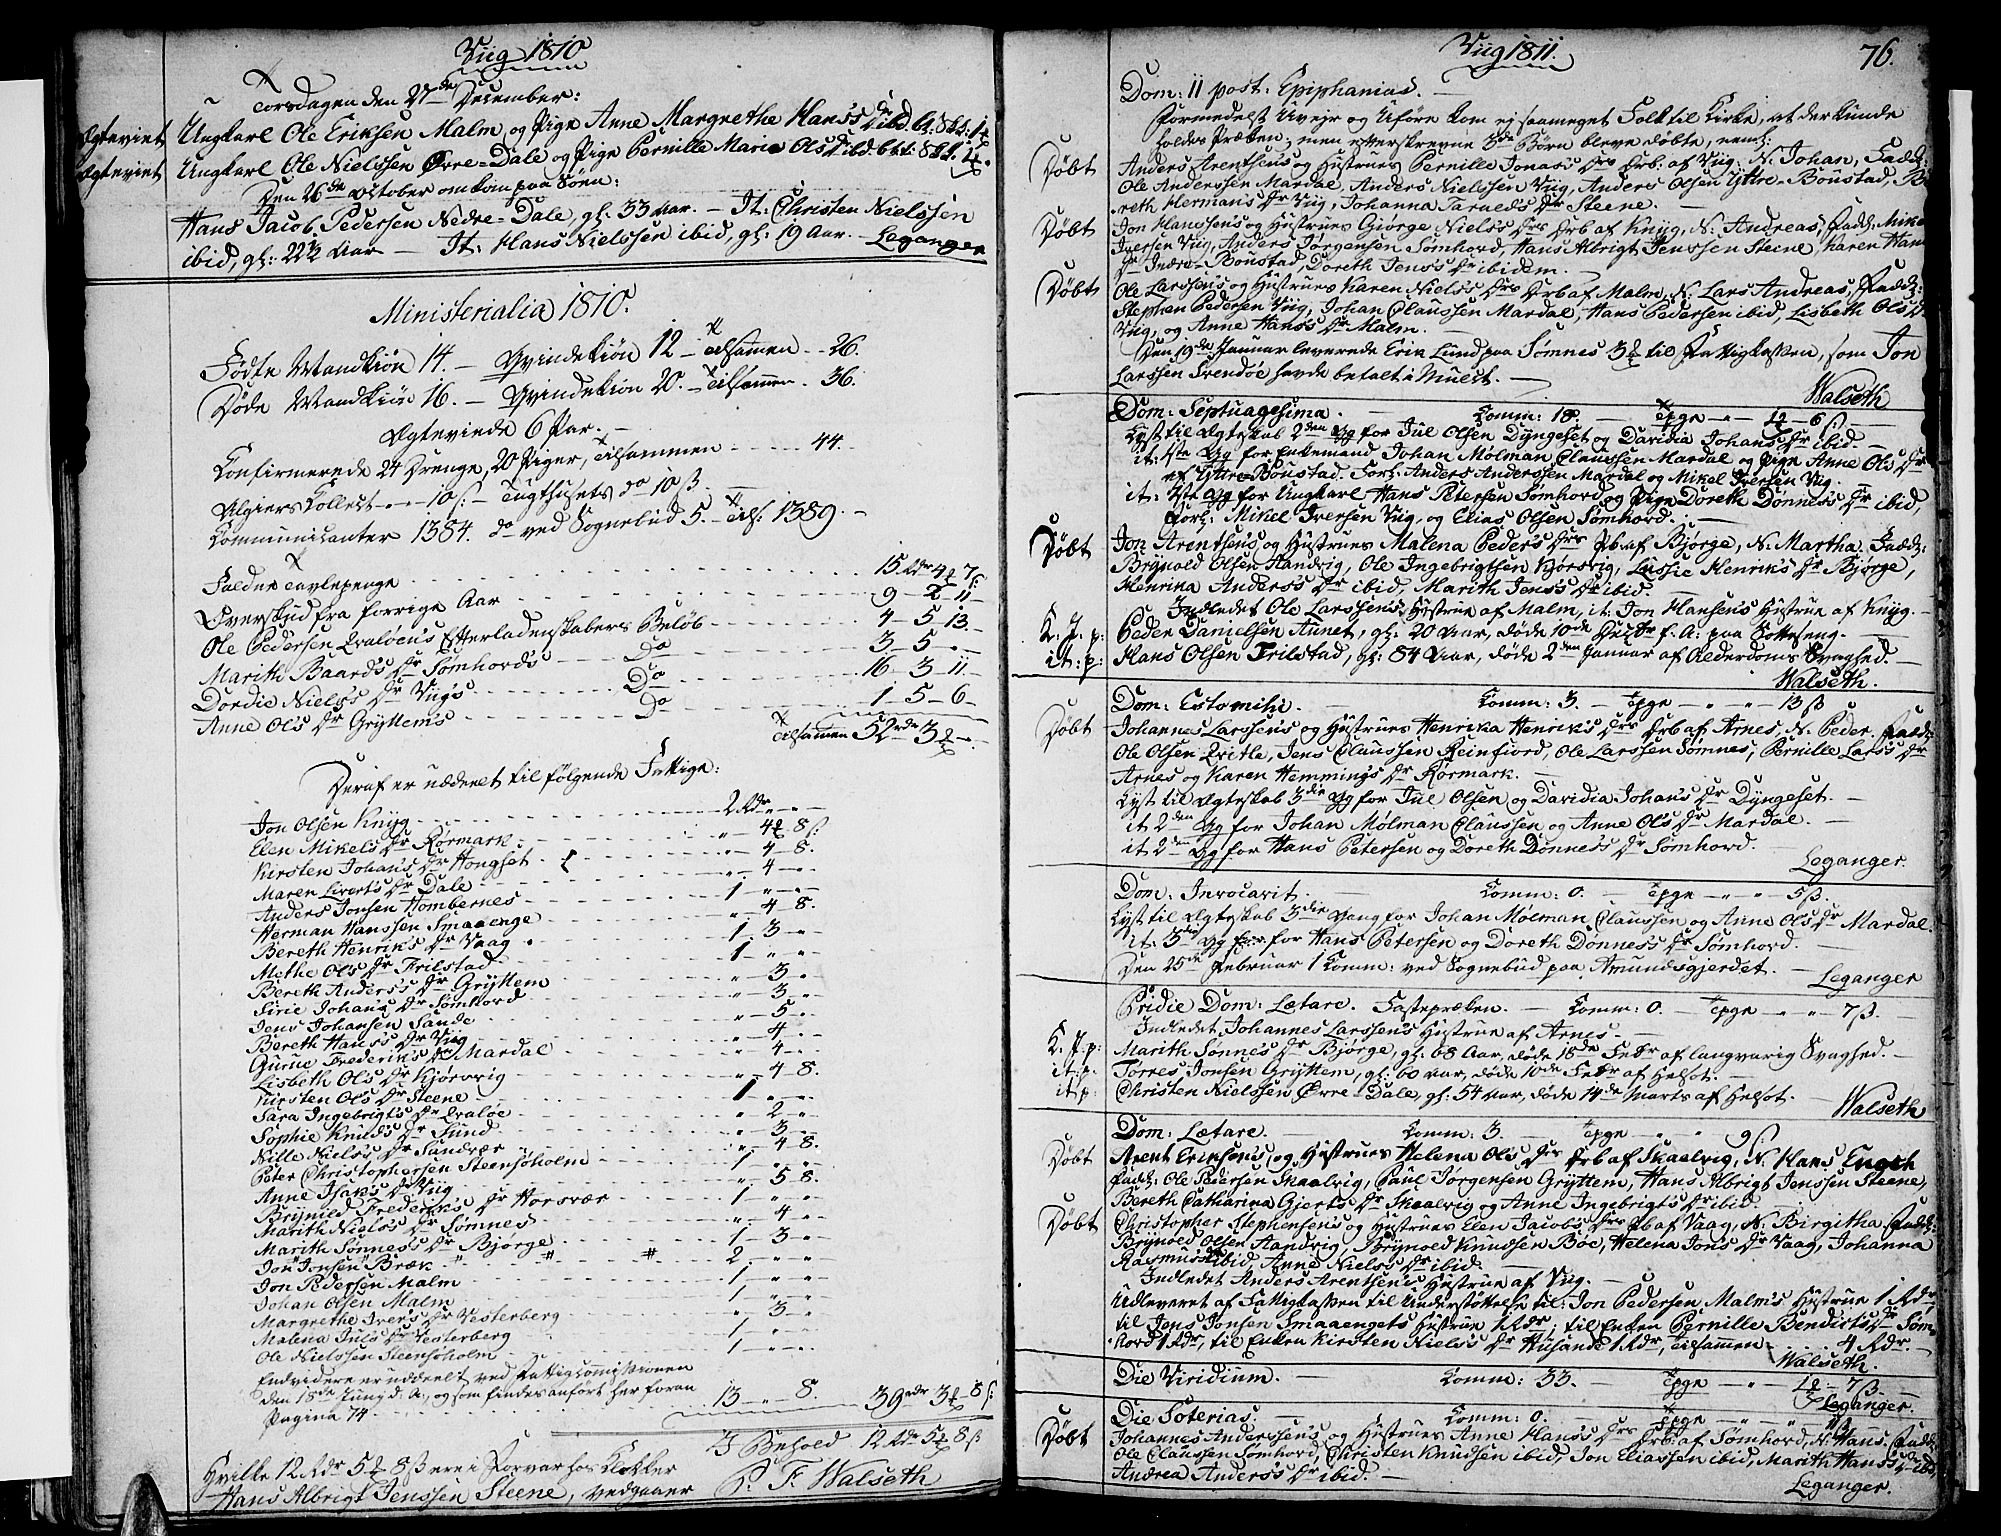 Viig 1810
Torsdagen den 27de December:
Ægteviet Ungkarl Ole Eriksen Malm, og Pige Anne Margrethe Hans's Dr ibd.
Ægteviet Ungkarl Ole Nielssen Øvre-Dale og Pige Pernille Maria Ols Dr ibd.
Den 26de October omkom paa Søen:
Hans Jacob Pedersen Nedre-Dale, gl: 33 Aar. — It: Christen Nielssen
ibid, gl: 22½ Aar — It: Hans Nielssen ibid, gl: 19 Aar. — Leganger
Ministerialia 1810.
Fødte Mandkiön 14. — Qvindekiön 12 — Tilsamen - - 26.
Døde Mandkiön 16. — Qvindekiön 20. — Tilsammen - 36.
Ægteviede 6 Par. —
Konfirmerede 24 Drenge, 20 Piger, Tilsammen - - - - - 44.
Algiers Collect - - - 10 ß. — Tugthusets do 10 ß. —
Communicanter 1384. do ved Sognebud 5. — Tils: 1389. —
Falder Tavlepenge - - - 15 Rdr 4 - 7 ß
Overskud fra forrige Aar - - - 9 - 2 - 11 -
Ole Pedersen Qvaløens Efterladenskabers Beløb - - - 4 - 5 - 13 -
Marith Baards Dr Sømhords - - - Do - - - 3 - 5 - „ -
Dordie Niels's Dr Viig's - - - Do - - - 16 - 3 - 11 -
Anne Ols's Dr Gryttem's - - - Do - - - 1 - 5 - 6 -
Tilsamen 52 rdr 3
Deraf er uddeelet til følgende Fattige:
Jon Olsen Knyg - - - 2 Rdr „ - „ -
Elen Mikels Dr Rørmark - - - „ - 4 - 8 ß:
Kirsten Johans's Dr Hongset - - - „ - 4 - 8.
Maren Siverts Dr Dale - - - „ - 4 - „ -
Anders Jonsen Hombernes - - - 1 - „ - „ -
Herman Hanssen Smaaenge - - - „ - 4 - 8.
Bereth Henrik's Dr Vaag - - - 1 - 3 - „ -
Methe Ols Dr Frilstad - - - 1 - „ - „ -
Bereth Anders's Dr Gryttem - - - „ - 3 - „ -
Sirie Johans Dr Sømhord - - - „ - 3 - „ -
Jens Johansen Sande - - - „ - 5 - „ -
Bereth Hans's Dr Viig - - - „ - 4 - „ -
Gurue Frederik's Dr Mardal - - - „ - 4 - „ -
Lisbeth Ols Dr Kjørsvig - - - „ - 4 - 8.
Kirsten Ols Dr Steene - - - 1 - „ - „ -
Sara Ingebrigts Dr Qvaløe - - - „ - 2 - „ -
Sophie Knuds Dr Sund - - - „ - 3 - „ -
Nille Niels's Dr Sandvær - - - „ - 4 - 8.
Peter Christophersen Steensøholm - - - 1 - „ - „
Anne Isaks Dr Viig - - - „ - 5 - 8.
Brynild Frederik's Dr Horsvær - - - 1 - „ - „ -
Marith Niels's Dr Sømnes - - - „ - 4 - „ -
Marith Sønnes's Dr Bjørge - - - 1 - 3 - „ -
Jon Jonsen Bræk - - - 2 - „ - „ -
Jon Pedersen Malm - - - 1 - „ - „ -
Johan Olsen Malm - - - 1 - „ - „ -
Margrethe Iver's Dr Vesterberg - - - „ - 3 - „ -
Malena Juls Dr Vesterberg - - - 1 - „ - „ -
Ole Nielssen Steensøholm - - - 1 - „ - „ -
Endvidere er uddeelt ved Fattigcommissionen
den 18de Juny d. A., og som findes anført her foran
Pagina 74 - - - 13 - „ - 8. 39 rdr 3 - 8 ß:
I Behold 12 Rdr 5 - 8 ß
Hvilke 12 Rdr 5 - 8 ß ere i Forvar hos Klokker
Hans Albrigt Jenssen Steene, vedgaaer P. F. Walseth
Viig 1811. 76.
Dom: II post: Epiphanias. —
Formedelst Uvejr og Uføre kom ej saameget Folk til Kirke, at der kunde
holdes Præken; men efterskrevne 3de Børn bleve døbte, neml:
Døbt Anders Arentsens og Hustrues Pernille Jonas's Drs Drb. af Viig. N. Johan, Fadd:
Ole Anderssen Mardal, Anders Nielssen Viig, Anders Olsen Yttre-Boustad, Be
reth Hermans Dr Viig, Johanna Tarald's Dr Steene. —
Døbt Jon Hansens og Hustrues Giørge Niels's Drs Drb af Knyg, N. Andreas, Fadd: Mikel
Iversen Viig, Anders Jørgensen Sømhord, Hans Albrigt Jenssen Steene, Karen Hans
Dr Indre-Boustad, Doreth Jens's Dr ibidem. —
Døbt Ole Larssens og Hustrues Karen Niels's Drs Drb af Malm, N: Lars Andreas, Fadd:
Stephen Pedersen Viig, Johan Claussen Mardal, Hans Pedersen ibid, Lisbeth Ols Dr
Viig, og Anne Hans's Dr Malm. —
Den 19de Januar leverede Erik Lund paa Sømnes 3 til Fattigkassen, som Jon
Larssen Svendøe havde betalt i Mulct. —
Walseth
Dom: Septuagesima. — Comm: 18. — Tpge - „ - 1 - 6 ß
Lyst til Ægteskab 2den Gg for Jul Olsen Dyngeset og Davidia Johans's Dr ibid —
it: 1ste Gg for Enkemand Johan Mølman Claussen Mardal og Pige Anne Ols Dr
af Yttre-Boustad. Forl: Anders Anderssen Mardal og Mikel Iversen Viig. —
it: 1ste Gg for Ungkarl Hans Petersen Sømhord og Pige Doreth Dønnes's Dr ibid,
Forl: Mikel Iversen Viig, og Elias Olsen Sømhord. —
Døbt Jon Arentsens og Hustrues Malena Peder's Drs Pb. af Bjørge, N. Martha. Fadd:
Brynold Olsen Aandvig, Ole Ingebrigtsen Kjørsvig, Lussie Henrik's Dr Bjørge,
Henrika Anders's Dr ibid, Marith Jens's Dr ibid. —
Indledet Ole Larssens Hustrue af Malm, it: Jon Hansens Hustrue af Knyg. —
K. J. p: Peder Danielsen Aunet, gl: 20 Aar, døde 10de Decbr f. A: paa Sotteseng. —
it: p: Hans Olsen Frilstad, gl: 84 Aar, døde 2den Januar af Alderdoms Svaghed. —
Walseth.
Dom: Estomihi. — Comm: 3. — Tpge - „ - „ - 13 ß
Døbt Johannes Larssens og Hustrues Henrika Henrik's Drs Drb af Arnes, N. Peder. Fadd:
Ole Olsen Qvithe, Jens Claussen Reinfiord, Ole Larssen Sømnes, Pernille Lars's Dr
Arnes og Karen Hemming's Dr Rørmark. —
Lyst til Ægteskab 3die Gg for Jul Olsen og Davidia Johans's Dr Dyngeset. —
it 2den Gg for Johan Mølman Claussen og Anne Ols Dr Mardal. —
it 2den Gg for Hans Petersen og Doreth Dønnes's Dr Sømhord. —
Leganger
Dom: Invocavit. — Comm: 0. — Tpge - „ - „ - 5 ß.
Lyst til Ægteskab 3die Gang for Johan Mølman Claussen og Anne Ols Dr Mardal.
it: 3die Gg for for Hans Petersen og Doreth Dønnes's Dr Sømhord. —
Den 25de Februar 1 Comm: ved Sognebud paa Amundsgjerdet. — Leganger
Pridie Dom: Lætare. Fastepræken. — Comm: 0. — Tpge - „ - „ - 7 ß.
Indledet Johannes Larssens Hustrue af Arnes —
K. J. p: Marith Sønnes's Dr Bjørge, gl: 68 Aar, døde 18de Febr af langvarig Svaghed. —
it: p: Torres Jonsen Gryttem, gl: 60 Aar, døde 10de Febr af Helsot. —
it p: Christen Nielssen Øvre-Dale, gl: 54 Aar, døde 14de Marts af Helsot. — Walseth
Dom: Lætare. — Comm: 3. — Tpge - „ - „ - 9 ß
Døbt Arent Eriksens, og Hustrues Helena Ols Drs Drb af Skaalvig, N. Hans Engel
Fadd: Ole Pedersen Skaalvig, Paul Jørgensen Gryttem, Hans Albrigt Jenssen Steene,
Bereth Catharina Gjerts Dr Skaalvig og Anne Ingebrigts Dr ibid.
Døbt Christopher Stephensens og Hustrues Elen Jacobs Drs Pb af Vaag, N. Birgitha. Fadd:
Brynold Olsen Aandvig, Brynold Knudsen Bøe, Helena Jons's Dr Vaag, Johanna
Rasmus's Dr ibid, Anne Niels's Dr ibid. —
Indledet Anders Arentsens Hustrue af Viig. —
Udleveret af Fattigkassen til Understøttelse til: Jon Pedersen Malm's Hustrue 1 Rdr,
til Jens Jonsen Smaaengets Hustrue 1 Rdr; til Enken Pernille Bendicts Dr Søm-
hord 1 Rdr, til Enken Kirsten Niels's Dr Husande 1 Rdr, Tilsamen - 4 Rdr. —
Walseth.
Die Viridium. — Comm: 33. — Tpge - „ - 1 - 7 ß. —
Leganger.
Die Soterias. — Comm: 0. — Tpge - „ - „ -
Døbt Johannes Anderssens og Hustrues Anne Hans's Drs Drb: af Sømhord, N: Hans. Fadd:
Ole Claussen Sømhord, Christen Knudsen ibid, Jon Eliassen ibid, Marith Hans's Dr ibid
Andrea Anders's Dr ibid. —
Leganger.